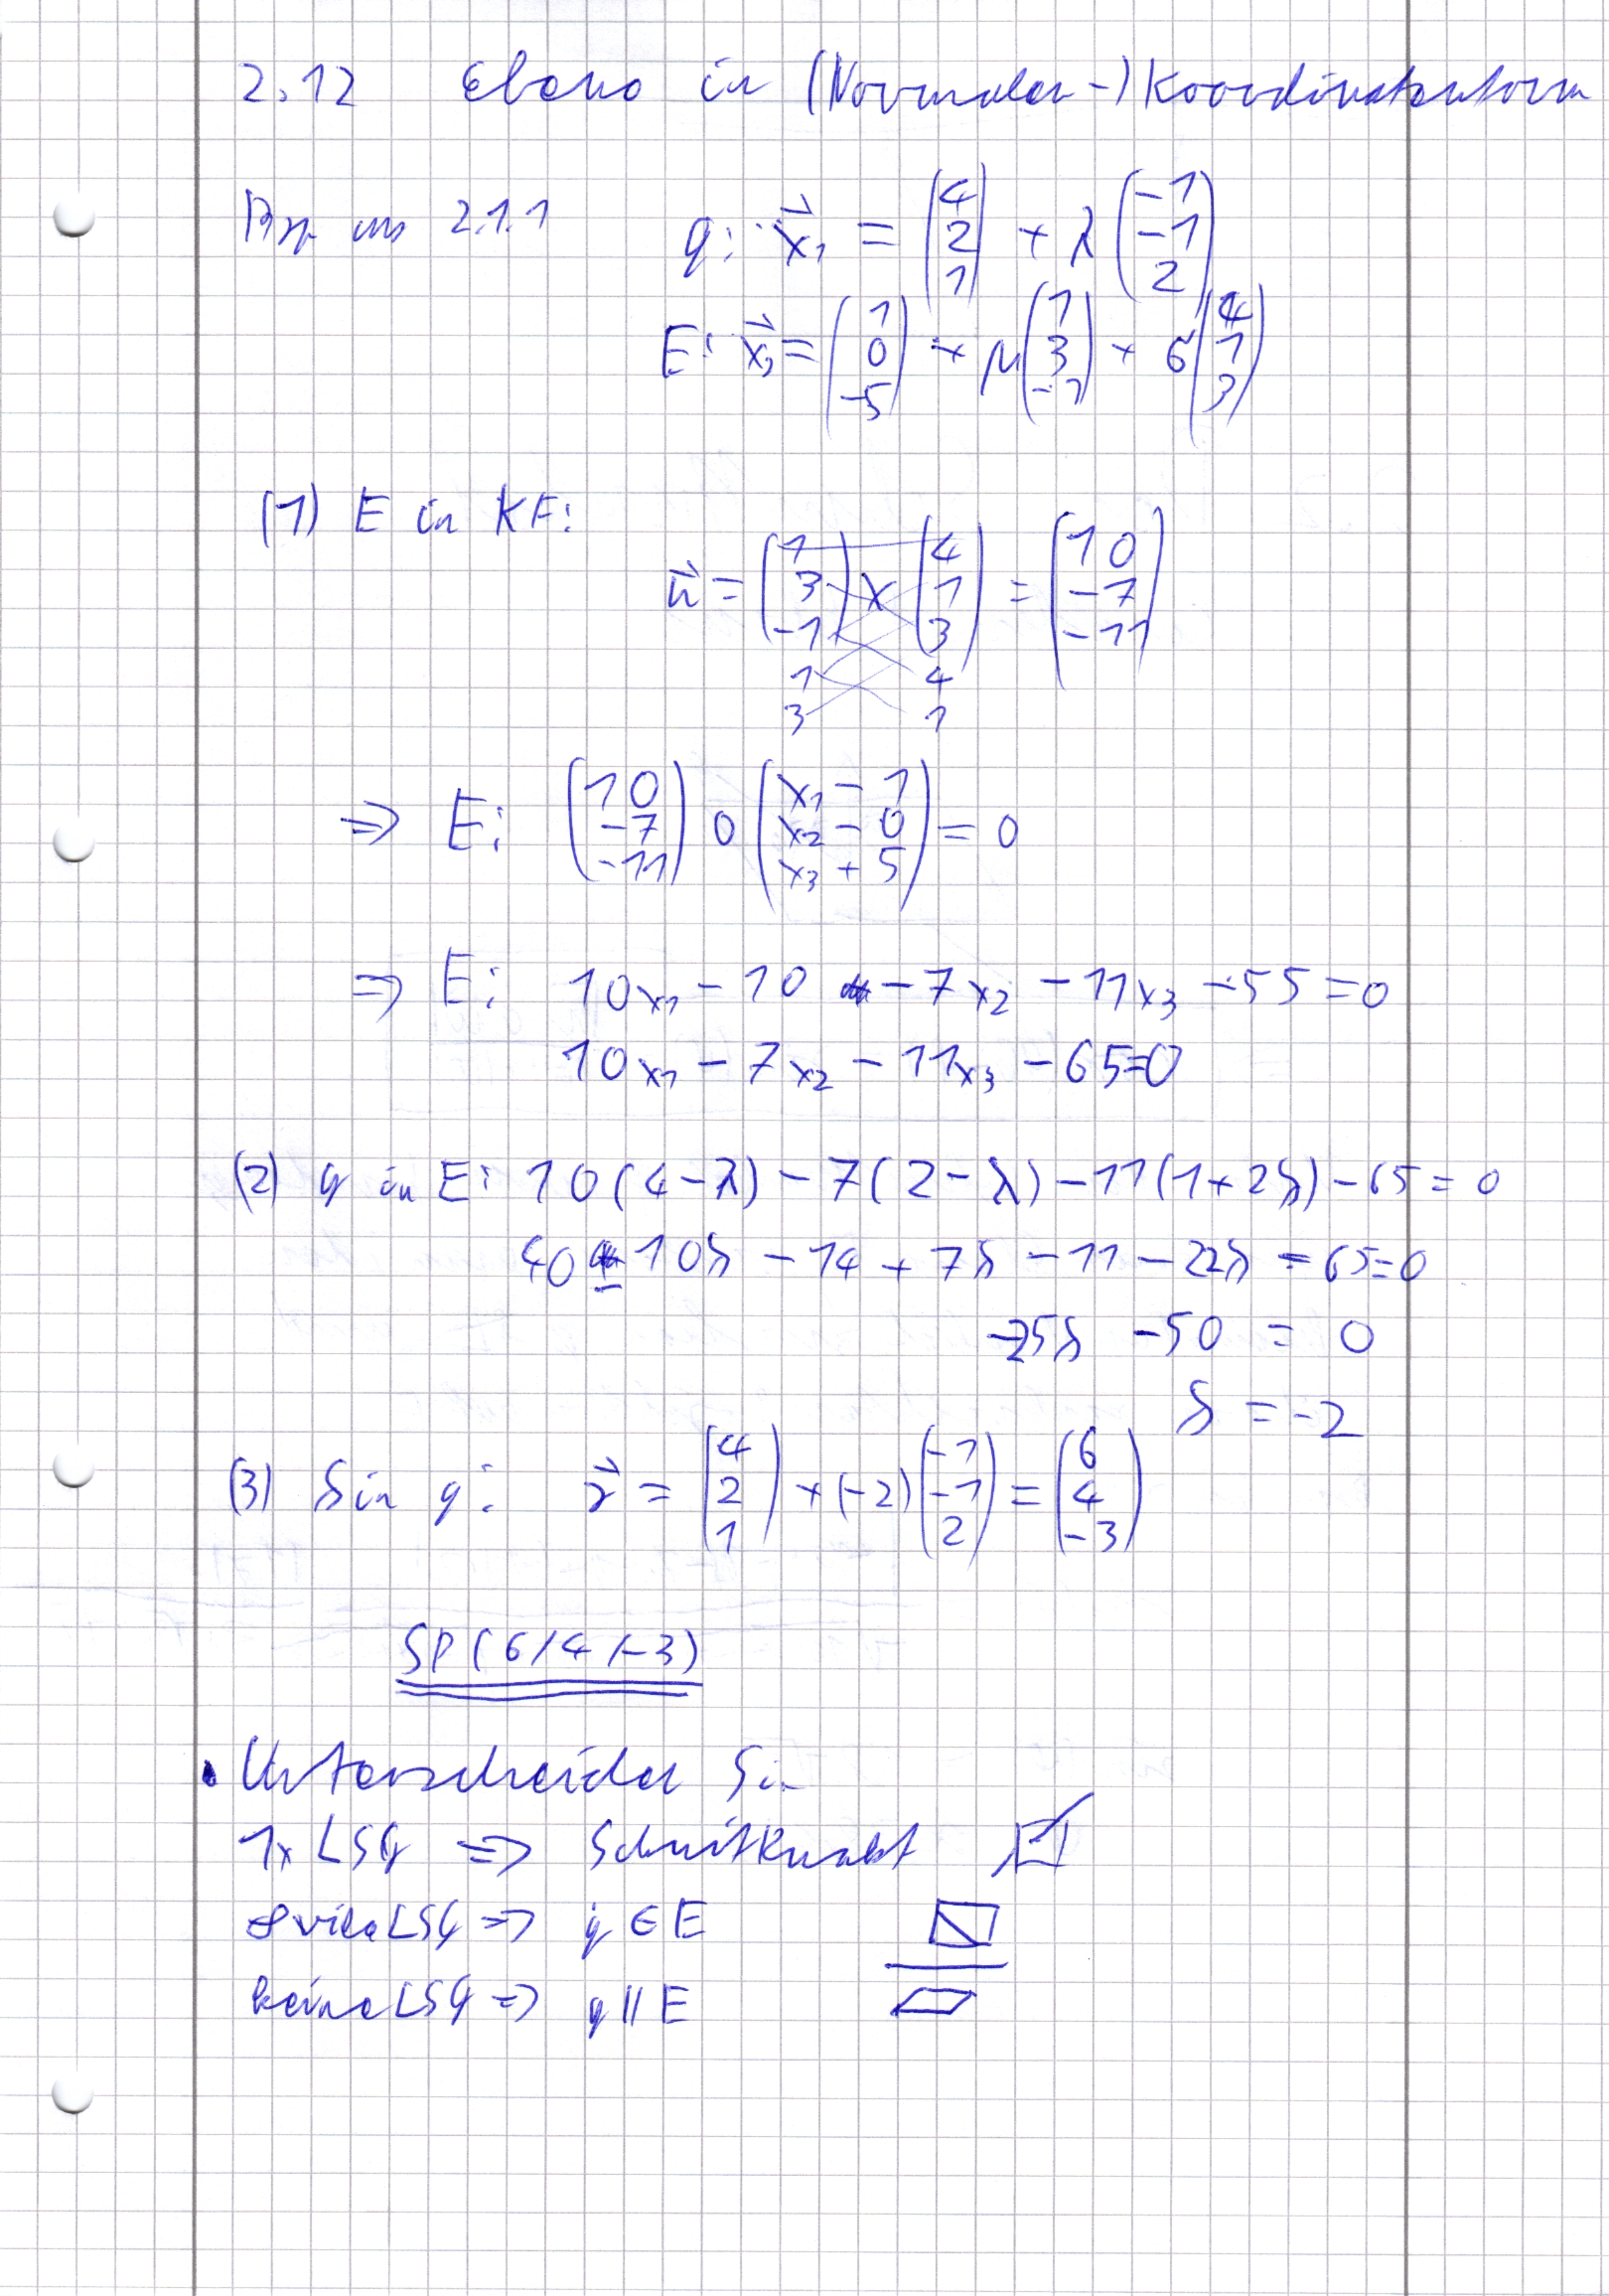 2.12 Ebene in (Normalen-) Koordinatenform
Bsp aus 2.1.1 g: x⃗₁ = (4 2 1) + λ (-1 -1 2)
E: x⃗₂ = (1 0 -5) + μ (1 3 -1) + σ (4 1 3)
(1) E in KF:
n⃗ = (1 3 -1) × (4 1 3) = (10 -7 -11)
1 4
3 1
⇒ E: (10 -7 -11) ∘ (x₁ - 1 x₂ - 0 x₃ + 5) = 0
⇒ E: 10x₁ - 10 - 7x₂ - 11x₃ - 55 = 0
10x₁ - 7x₂ - 11x₃ - 65 = 0
(2) g in E: 10(4-λ) - 7(2-λ) - 11(1+2λ) - 65 = 0
40 - 10λ - 14 + 7λ - 11 - 22λ - 65 = 0
-25λ - 50 = 0
λ = -2
(3) λ in g: = (4 2 1) + (-2) (-1 -1 2) = (6 4 -3)
SP (6/4/-3)
• Unterscheiden Sie
1x LSG ⇒ Schnittpunkt
∞ viele LSG ⇒ g ∈ E
keine LSG ⇒ g || E